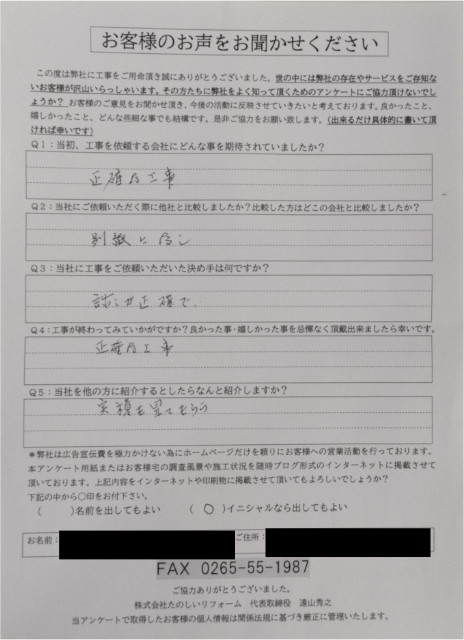 お客様のお声をお聞かせください
この度は弊社に工事をご用命頂き誠にありがとうございました。世の中には弊社の存在やサービスをご存知ない
お客様が沢山いらっしゃいます。その方たちに弊社をよく知って頂くためのアンケートにご協力頂けないでし
ょうか？お客様のご意見をお聞かせ頂き、今後の活動に反映させていきたいと考えております。良かったこと、
嬉しかったこと、どんな些細な事でも結構です。是非ご協力をお願い致します。（出来るだけ具体的に書いて頂
ければ幸いです）
Q1：当初、工事を依頼する会社にどんな事を期待されていましたか？
正確な工事
Q2：当社にご依頼いただく際に他社と比較しましたか？比較した方はどこの会社と比較しましたか？
Q3：当社に工事をご依頼いただいた決め手は何ですか？
話しが正確で、
Q4：工事が終わってみていかがですか？良かった事・嬉しかった事を忌憚なく頂戴出来ましたら幸いです。
正確な工事
Q5：当社を他の方に紹介するとしたらなんと紹介しますか？
実績を見てもらう
＊弊社は広告宣伝費を極力かけない為にホームページだけを頼りにお客様への営業活動を行っております。
本アンケート用紙またはお客様宅の調査風景や施工状況を随時ブログ形式のインターネットに掲載させて
頂いております。上記内容をインターネットや印刷物に掲載させて頂いてもよろしいでしょうか？
下記の中から○印をお付下さい。
（　　）名前を出してもよい　（ ○ ）イニシャルなら出してもよい
お名前：　ご住所：
FAX 0265-55-1987
ご協力ありがとうございました。
株式会社たのしいリフォーム　代表取締役　遠山秀之
当アンケートで取得したお客様の個人情報は関係法規に基づき厳正に管理いたします。